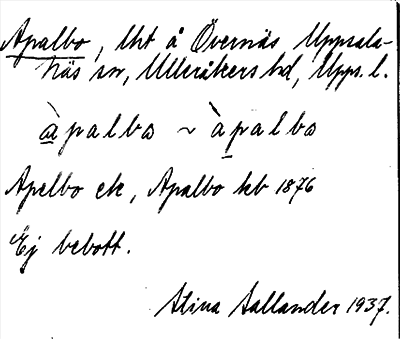 Apalbo, lht å Övernäs Uppsala-
näs sn, Ulleråkers hd, Upps. l.
àpalbo ~ àpalbo
Apelbo ek, Apalbo kb 1876
Ej bebott.
Stina Sallander 1937.